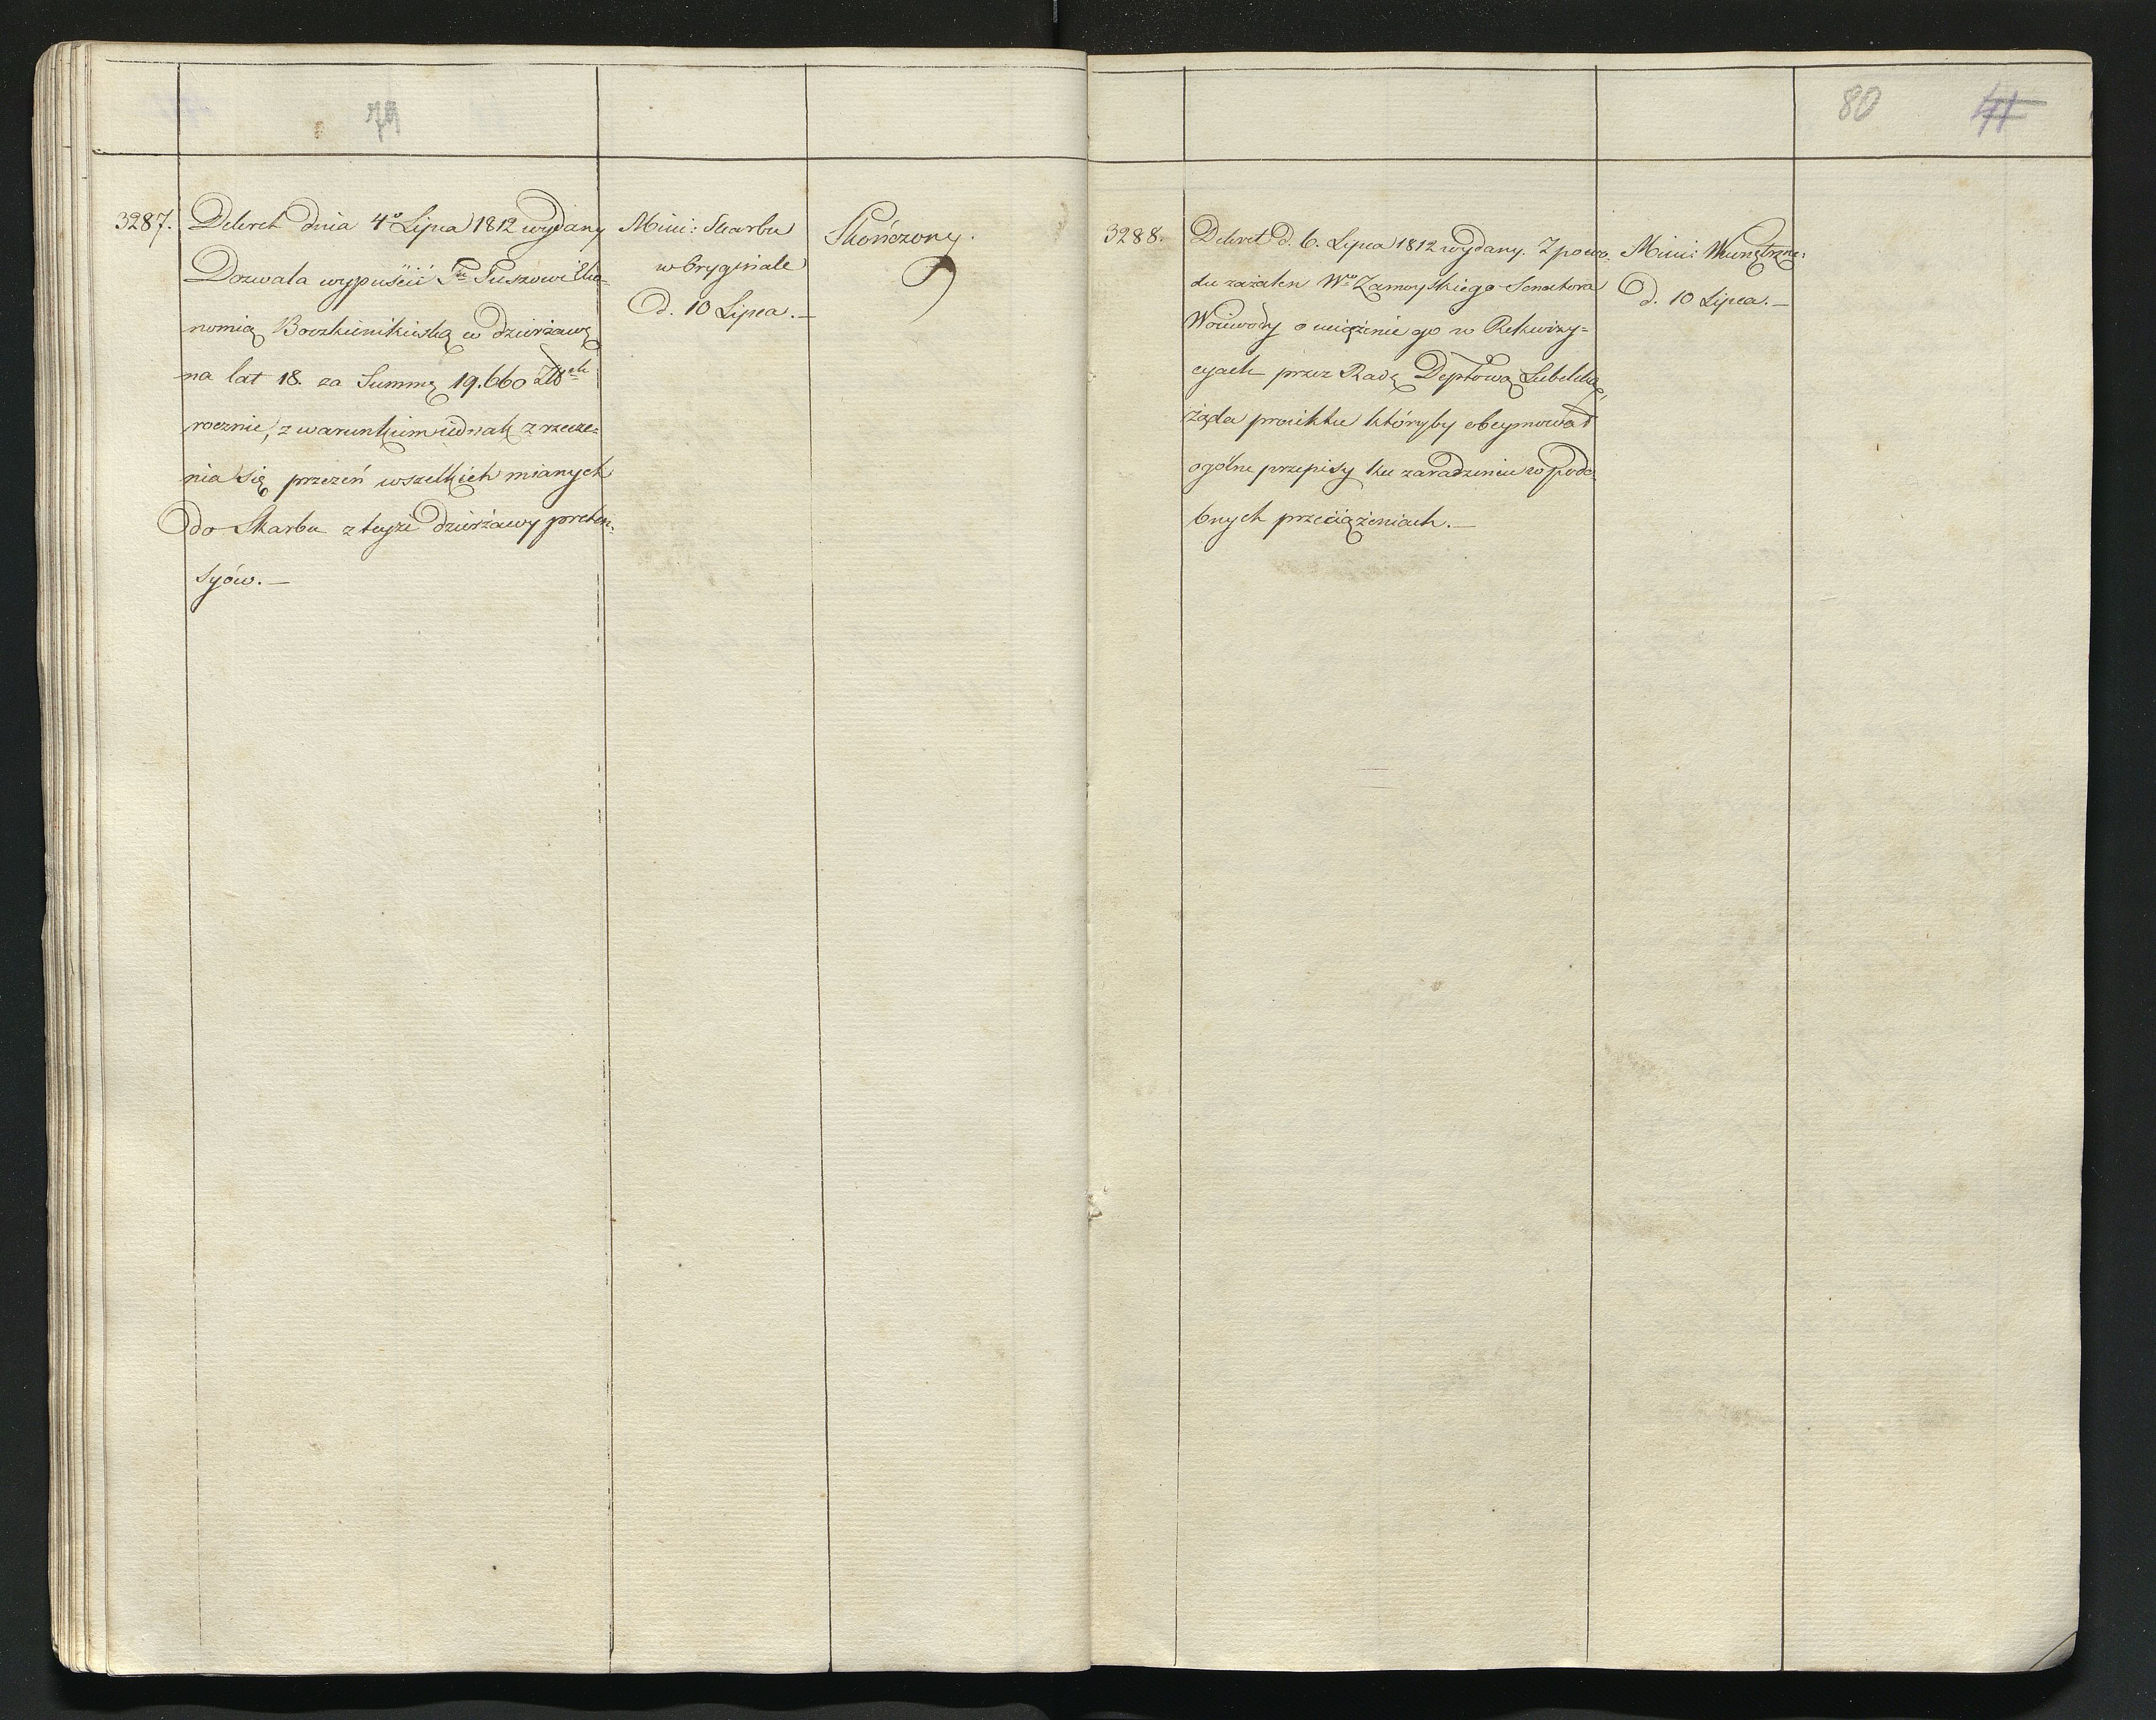 79
3287.
Dekret dnia 4º Lipca 1812 wydany
Dozwala wypuścić Pu Puszowi Eko-
nomią w dzierżawę
na lat 18. za Summę 19.660 Złłch
rocznie, z warunkiem iednak zrzecze=
nia się przezeń wszelkich mianych
do Skarbu z teyże dzierżawy preten-
syów.—
Mini: Skarbu
w Oryginale
d. 10 Lipca.—
Skończony.
80 41
3288.
Dekret d. 6. Lipca 1812 wydany. Z powo-
du zażaleń Wo Zamoyskiego Senatora
Woiewody o uciążenie go w Rekwizy=
cyach przez Radę Deptową Lubelską,
żąda proiektu któryby obeymował
ogólne przepisy ku zaradzeniu w podo-
bnych przeciążeniach.—
Mini: Wewnętrzne:
d. 10 Lipca.—